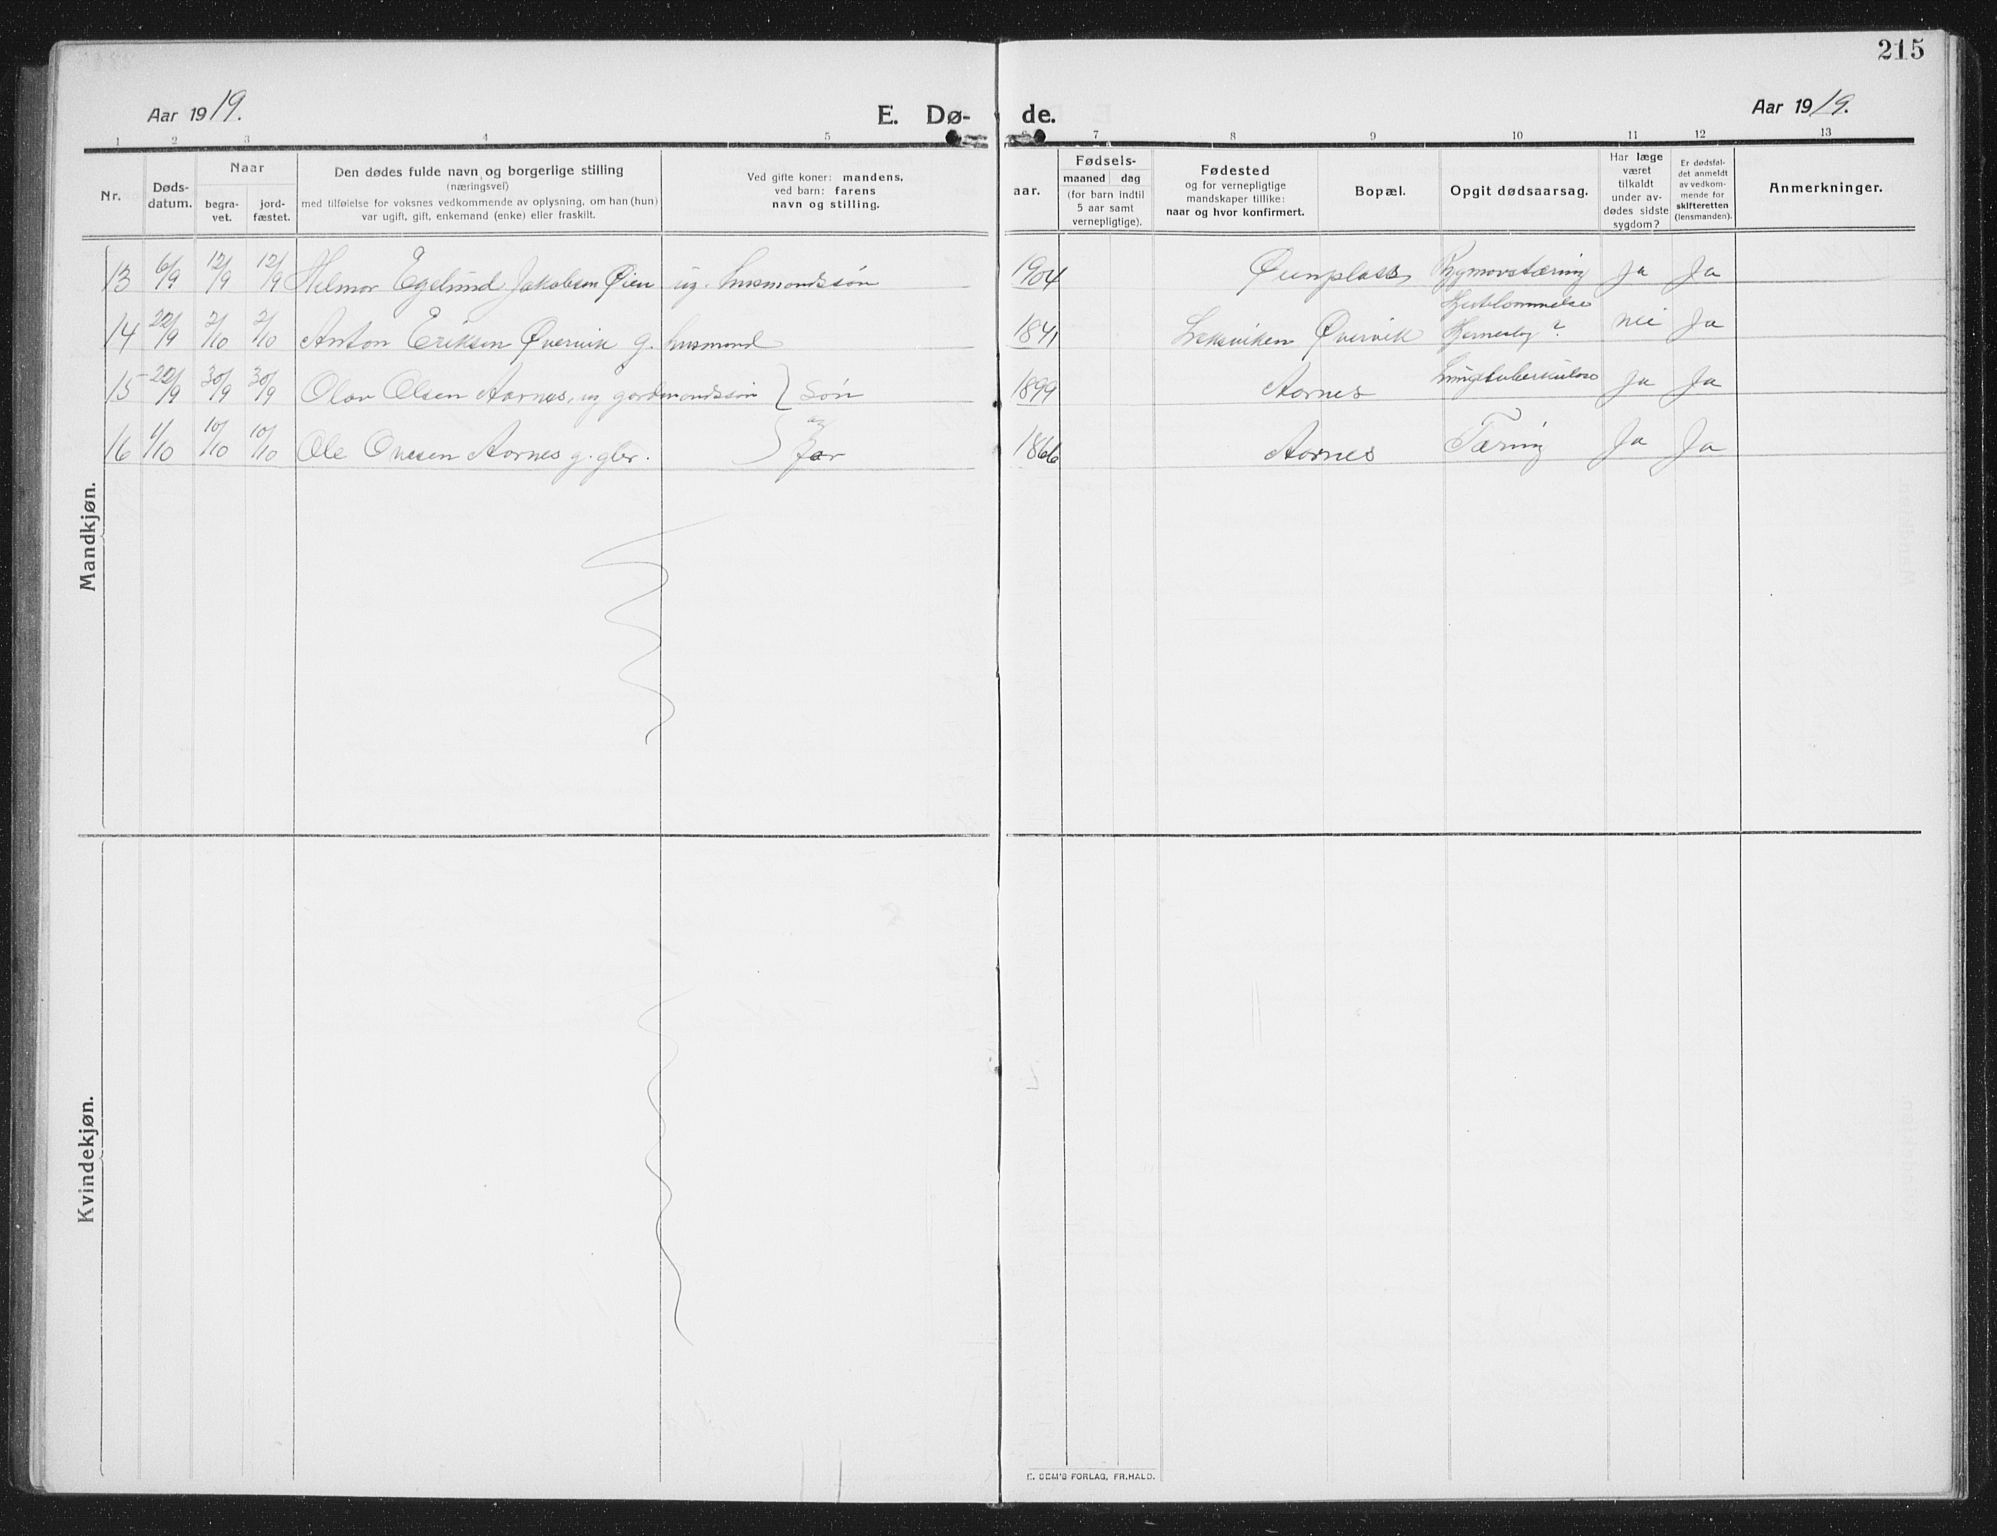 215
Aar 1919.
E. Dø-
de.
Aar 1919.
1 2 3 4 5 6 7 8 9 10 11 12 13
Nr.
Døds-
datum.
Naar
begra-
vet.
jord-
fæstet.
Den dødes fulde navn og borgerlige stilling
(næringsvei)
med tilføielse for voksnes vedkommende av oplysning, om han (hun)
var ugift, gift, enkemand (enke) eller fraskilt.
Ved gifte koner: mandens,
ved barn: farens
navn og stilling.
aar.
Fødsels-
maaned dag
(for barn indtil
5 aar samt
vernepligtige).
Fødested
og for vernepligtige
mandskaper tillike:
naar og hvor konfirmert.
Bopæl.
Opgit dødsaarsag.
Har læge
været
tilkaldt
under av-
dødes sidste
sygdom?
Er dødsfal-
det anmeldt
av vedkom-
mende for
skifteretten
(lensmanden).
Anmerkninger.
Mandkjøn.
13 6/9 12/9 12/9 Hilmar Egelund Jakobsen Øien ug. husmandssøn 1904 Øienplass Rygmarvstæring Ja Ja
14 22/9 2/10 2/10 Anton Eriksen Øvervik g. husmand 1841 Leksviken Øvervik Hjerneslag? nei Ja
15 22/9 30/9 30/9 Olav Olsen Aarnes, ug gardmandssøn } Søn 1899 Aarnes Lungetuberkulose Ja Ja
og
16 1/10 10/10 10/10 Ole Ovesen Aarnes g. gbr. far 1866 Aarnes Tæring Ja Ja
Kvindekjøn.
E. SEM'S FORLAG, FR.HALD.